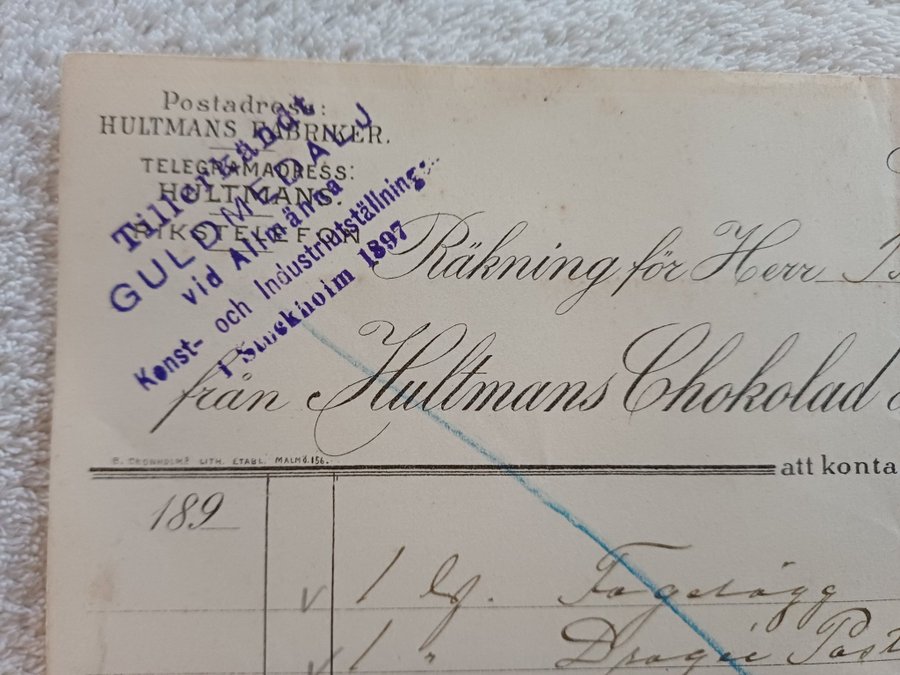 Postadress:
HULTMANS FABRIKER.
TELEGRAMADRESS:
HULTMANS.
RIKSTELEFON
Tillerkändt
GULDMEDALJ
vid Allmänna
Konst- och Industriutställning:
i Stockholm 1897
Räkning för Herr
från Hultmans Chokolad
B. CRONHOLMS LITH. ETABL. MALMÖ.156.
att konta
189
1 lg. Fogelägg
1 " Dragée Past